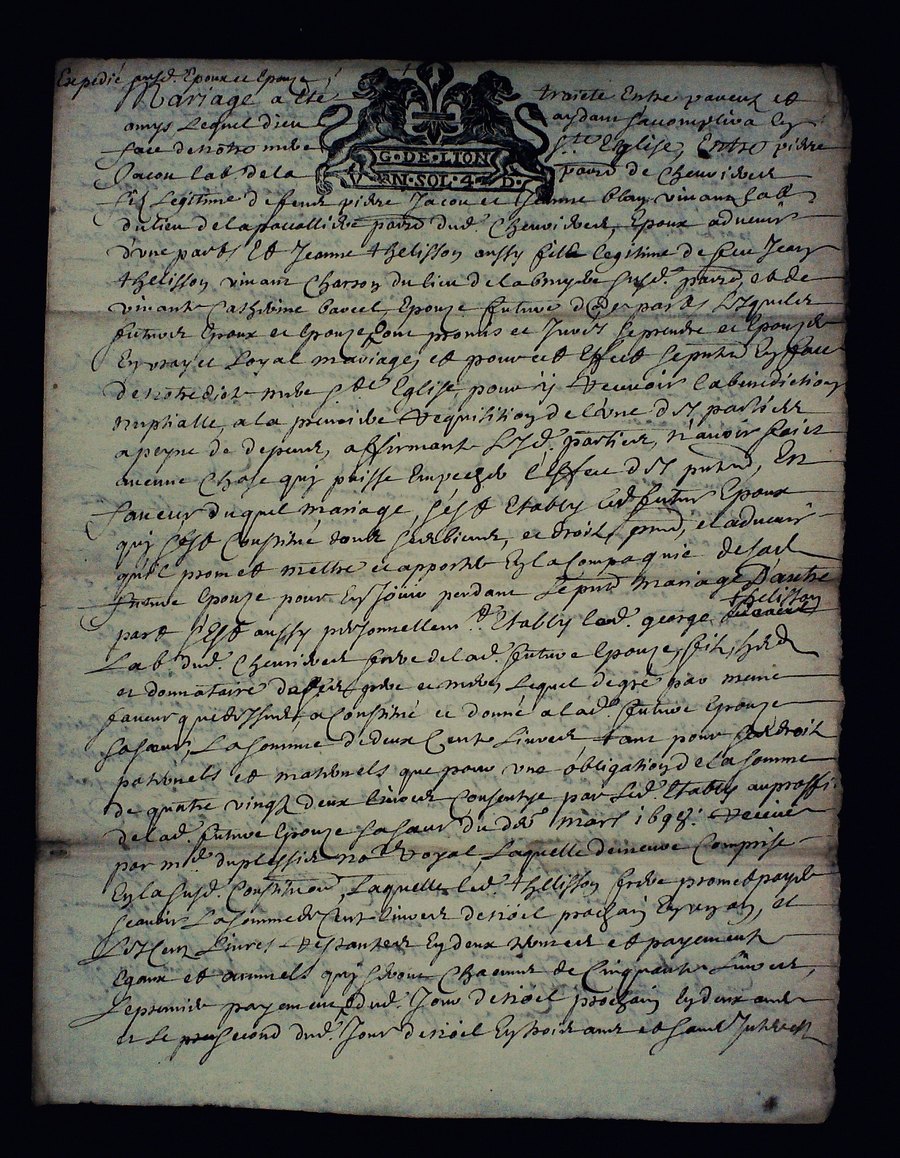 Expedié ausd. Epoux et Epouze
Mariage a été traicté Entre parents et
amys Lequel dieu aydant saccomplira En
face de nôtre mere Ste Eglise, Entre pierre
Jacou lab. de la parr. de
G·DE·LION
V·N·SOL·4·D·
fils Legitime de feu pierre Jacou et Jeanne vivant lab.
du lieu de la parr. dud. Epoux advenir
d'une part Et Jeanne thelisson aussy fille legitime de feu Jean
thelisson vivant du lieu de la susd. parr. et de
vivante Catherine Epouze future d'autre part Lesquels
futurs Epoux et Epouze ont promis et Jurés se prendre et Epouzer
En vray et Loyal mariage, et pour cet Effect se En face
de nôtre dicte mere Ste Eglise pour y recevoir la benediction
nuptialle, a la premiere requisition de l'une des parties
a peyne de depens, affirmant Lesd. parties, n'avoir faict
aucune Chose quy puisse Empecher l'effect des En
faveur duquel mariage s'est Etably led. futur Epoux
quy s'est Constitué touts ses biens, et droits, et advenir
qu'il promet mettre et apporter En la Compagnie de sad.
future Epouze pour En Jouir pendant Le mariage D'autre
thelisson
part s'Est aussy personnellemt. Etably led. george
Lab. dud. frere de lad. future Epouze, fils,
et donnataire de ses pere et mere, Lequel de gre par meme
faveur que dessus, a Constitué et donné a lad. future Epouze
sa sœur, La somme de deux Cents Livres tant pour ses droits
paternels et maternels que pour une obligation de la somme
de quatre vingt deux livres Consentye par led. Etably au proffit
de lad. future Epouze sa sœur du mars 1698. receue
par me. duplessis nore. Royal Laquelle demeure Comprise
En la susd. Constitution, Laquelle led. thelisson frere promet payer
scavoir La somme de Cent livres de noël prochain En un an, et
Les Cent Livres restantes En deux termes et payement
Egaux et annuels quy seront Chacuns de Cinquante Livres,
Le premier payement dud. Jour de noël prochain En deux ans
et Le second dud. Jour de noël En trois ans et sans Interests